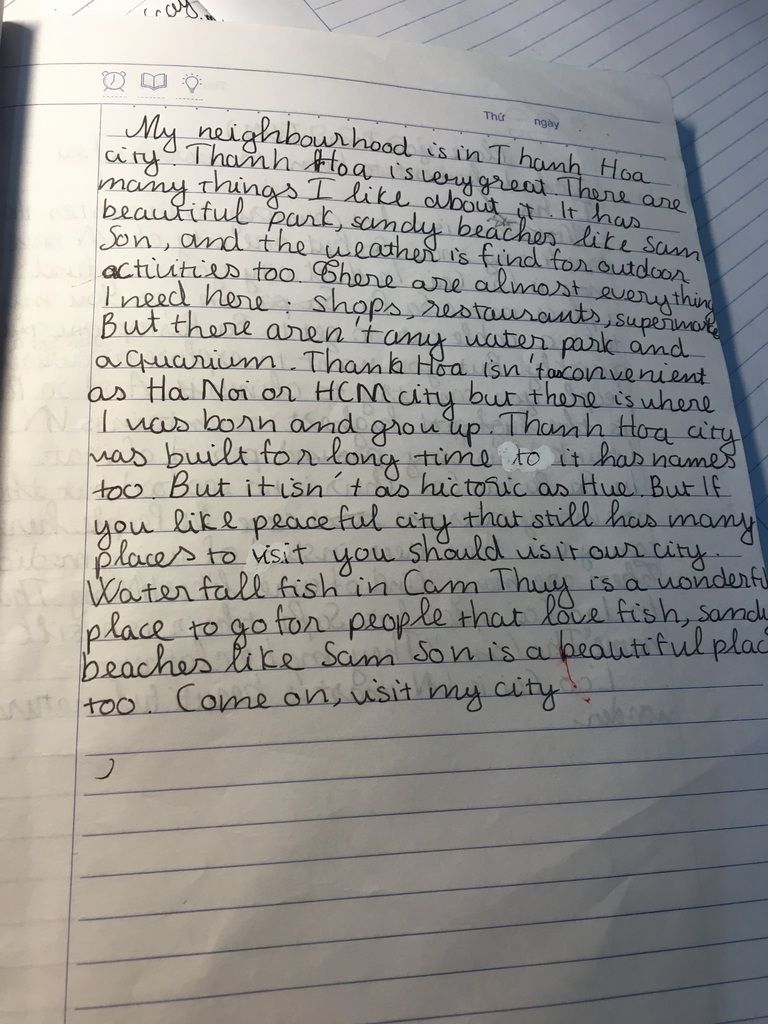 Thứ ngày
My neighbourhood is in Thanh Hoa
city. Thanh Hoa is very great. There are
many things I like about it. It has
beautiful park, sandy beaches like Sam
Son, and the weather is find for outdoor
activities too. There are almost everything
I need here : shops, restaurants, supermarke
But there aren't any water park and
aquarium. Thanh Hoa isn't convenient
as Ha Noi or HCM city but there is where
I was born and grow up. Thanh Hoa city
was built for long time to it has names
too. But it isn't as hictoric as Hue. But If
you like peaceful city that still has many
places to visit you should visit our city.
Water fall fish in Cam Thuy is a wonderful
place to go for people that love fish, sandy
beaches like Sam Son is a beautiful plac
too. Come on, visit my city !